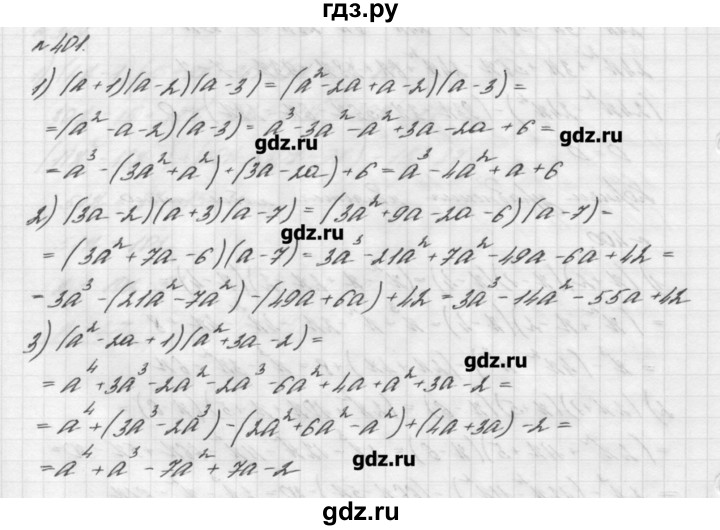 гдз.ру
№401.
1) (a+1)(a-2)(a-3) = (a²-2a+a-2)(a-3) =
= (a²-a-2)(a-3) = a³-3a²-a²+3a-2a+6 =
gdz.ru
gdz.ru
= a³-(3a²+a²)+(3a-2a)+6 = a³-4a²+a+6
2) (3a-2)(a+3)(a-7) = (3a²+9a-2a-6)(a-7) =
gdz.ru
= (3a²+7a-6)(a-7) = 3a³-21a²+7a²-49a-6a+42 =
= 3a³-(21a²-7a²)-(49a+6a)+42 = 3a³-14a²-55a+42
3) (a²-2a+1)(a²+3a-2) =
gdz.ru
= a⁴+3a³-2a²-2a³-6a²+4a+a²+3a-2 =
= a⁴+(3a³-2a³)-(2a²+6a²-a²)+(4a+3a)-2 =
= a⁴+a³-7a²+7a-2
gdz.ru
гдз.ру